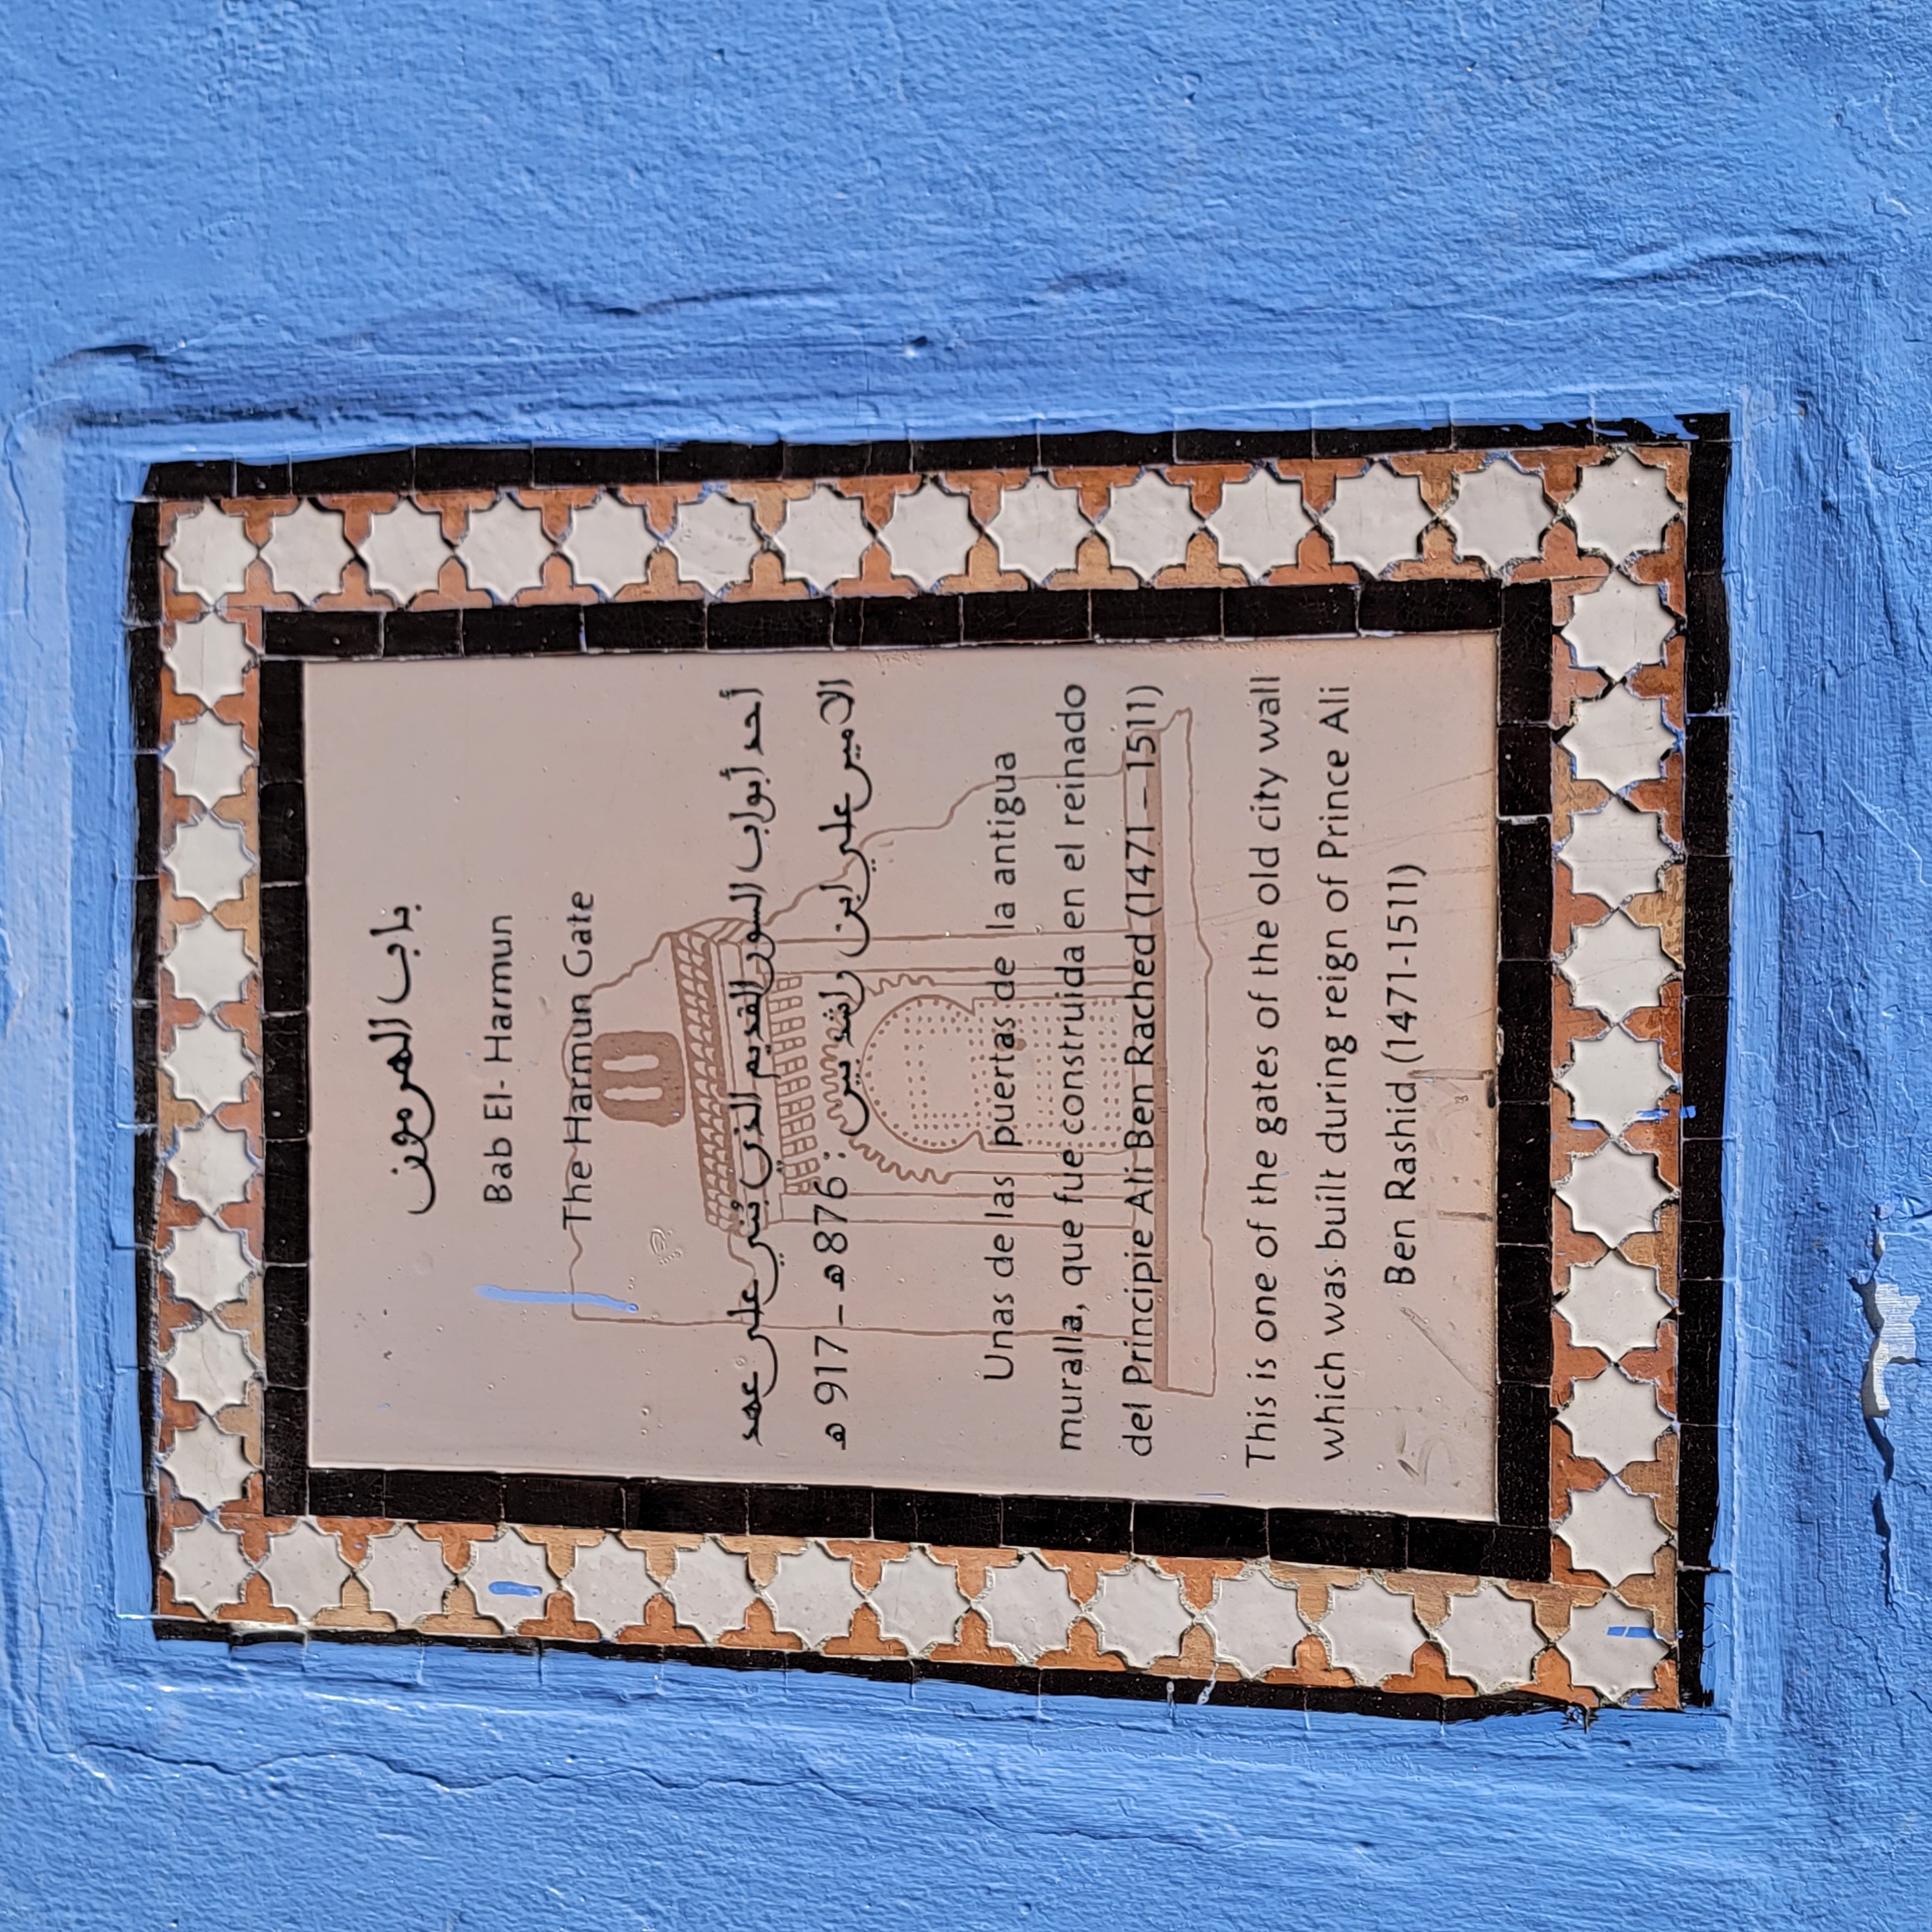 باب الهرمون
Bab El- Harmun
The Harmun Gate
أحد أبواب السور القديم الذي بُني على عهد
الامير علي ابن راشد بين : 876 هـ – 917 هـ
Unas de las puertas de la antigua
muralla, que fue construida en el reinado
del Principie Ali Ben Rached (1471–1511)
This is one of the gates of the old city wall
which was built during reign of Prince Ali
Ben Rashid (1471-1511)